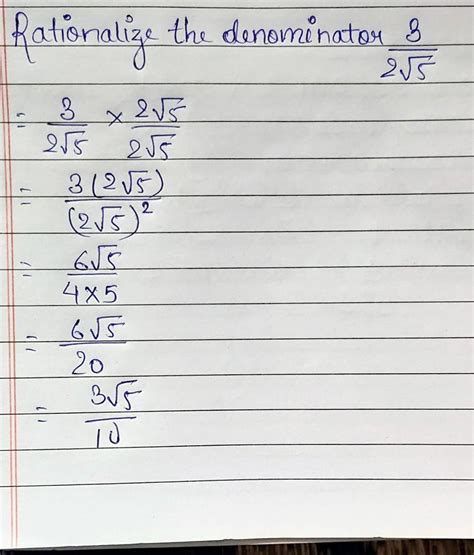 Rationalize the denominator 3/2√5
= 3/2√5 × 2√5/2√5
= 3(2√5)/(2√5)²
= 6√5/4×5
= 6√5/20
= 3√5/10